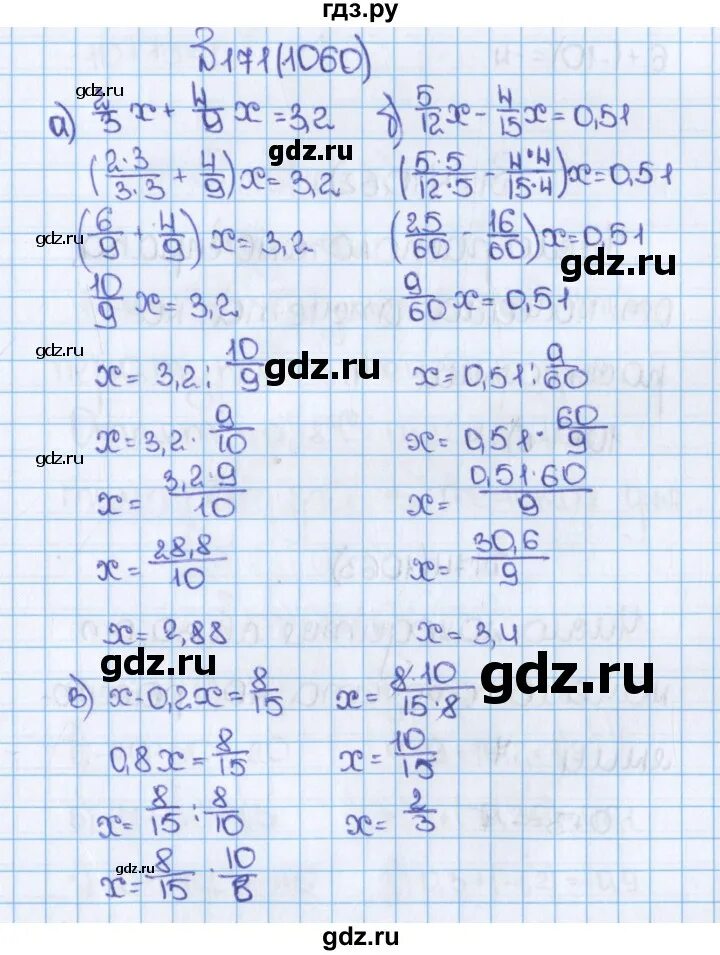 гдз.ру
В171(1060)
gdz.ru
а) 2/3 x + 4/9 x = 3,2
gdz.ru
(2·3/3·3 + 4/9) x = 3,2
gdz.ru
(6/9 + 4/9) x = 3,2
10/9 x = 3,2
gdz.ru
x = 3,2 : 10/9
gdz.ru
x = 3,2 · 9/10
gdz.ru
x = 3,2·9/10
x = 28,8/10
x = 2,88
б) 5/12 x - 4/15 x = 0,51
gdz.ru
(5·5/12·5 - 4·4/15·4) x = 0,51
(25/60 - 16/60) x = 0,51
gdz.ru
9/60 x = 0,51
x = 0,51 : 9/60
x = 0,51 · 60/9
x = 0,51·60/9
x = 30,6/9
x = 3,4
gdz.ru
в) x - 0,2x = 8/15
0,8x = 8/15
x = 8/15 : 8/10
gdz.ru
x = 8/15 · 10/8
x = 8·10/15·8
gdz.ru
x = 10/15
x = 2/3
gdz.ru